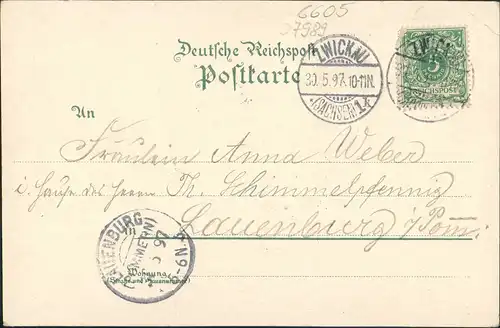 6605
37989
Deutsche Reichspost
Postkarte
ZWICKAU
30.5.97.10-11N.
(SACHSEN) 1
5
REICHSPOST
An
Fräulein Anna Weber
i. Hause des Herrn Th. Schimmelpfennig
in Lauenburg i/Pom.
LAUENBURG
(POMMERN)
97
Wohnung
(Straße und Hausnummer)